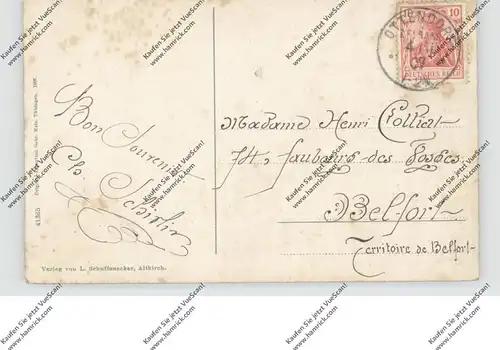 Kaufen Sie jetzt VueScan!
www.hamrick.com
10
OTTENDORF
DEUTSCHES REICH
Bon Souvenir
Madame Henri
74, faubourg des Vosges
Belfort
Territoire de Belfort
41365
Verlag von L. Schuffenecker, Altkirch.